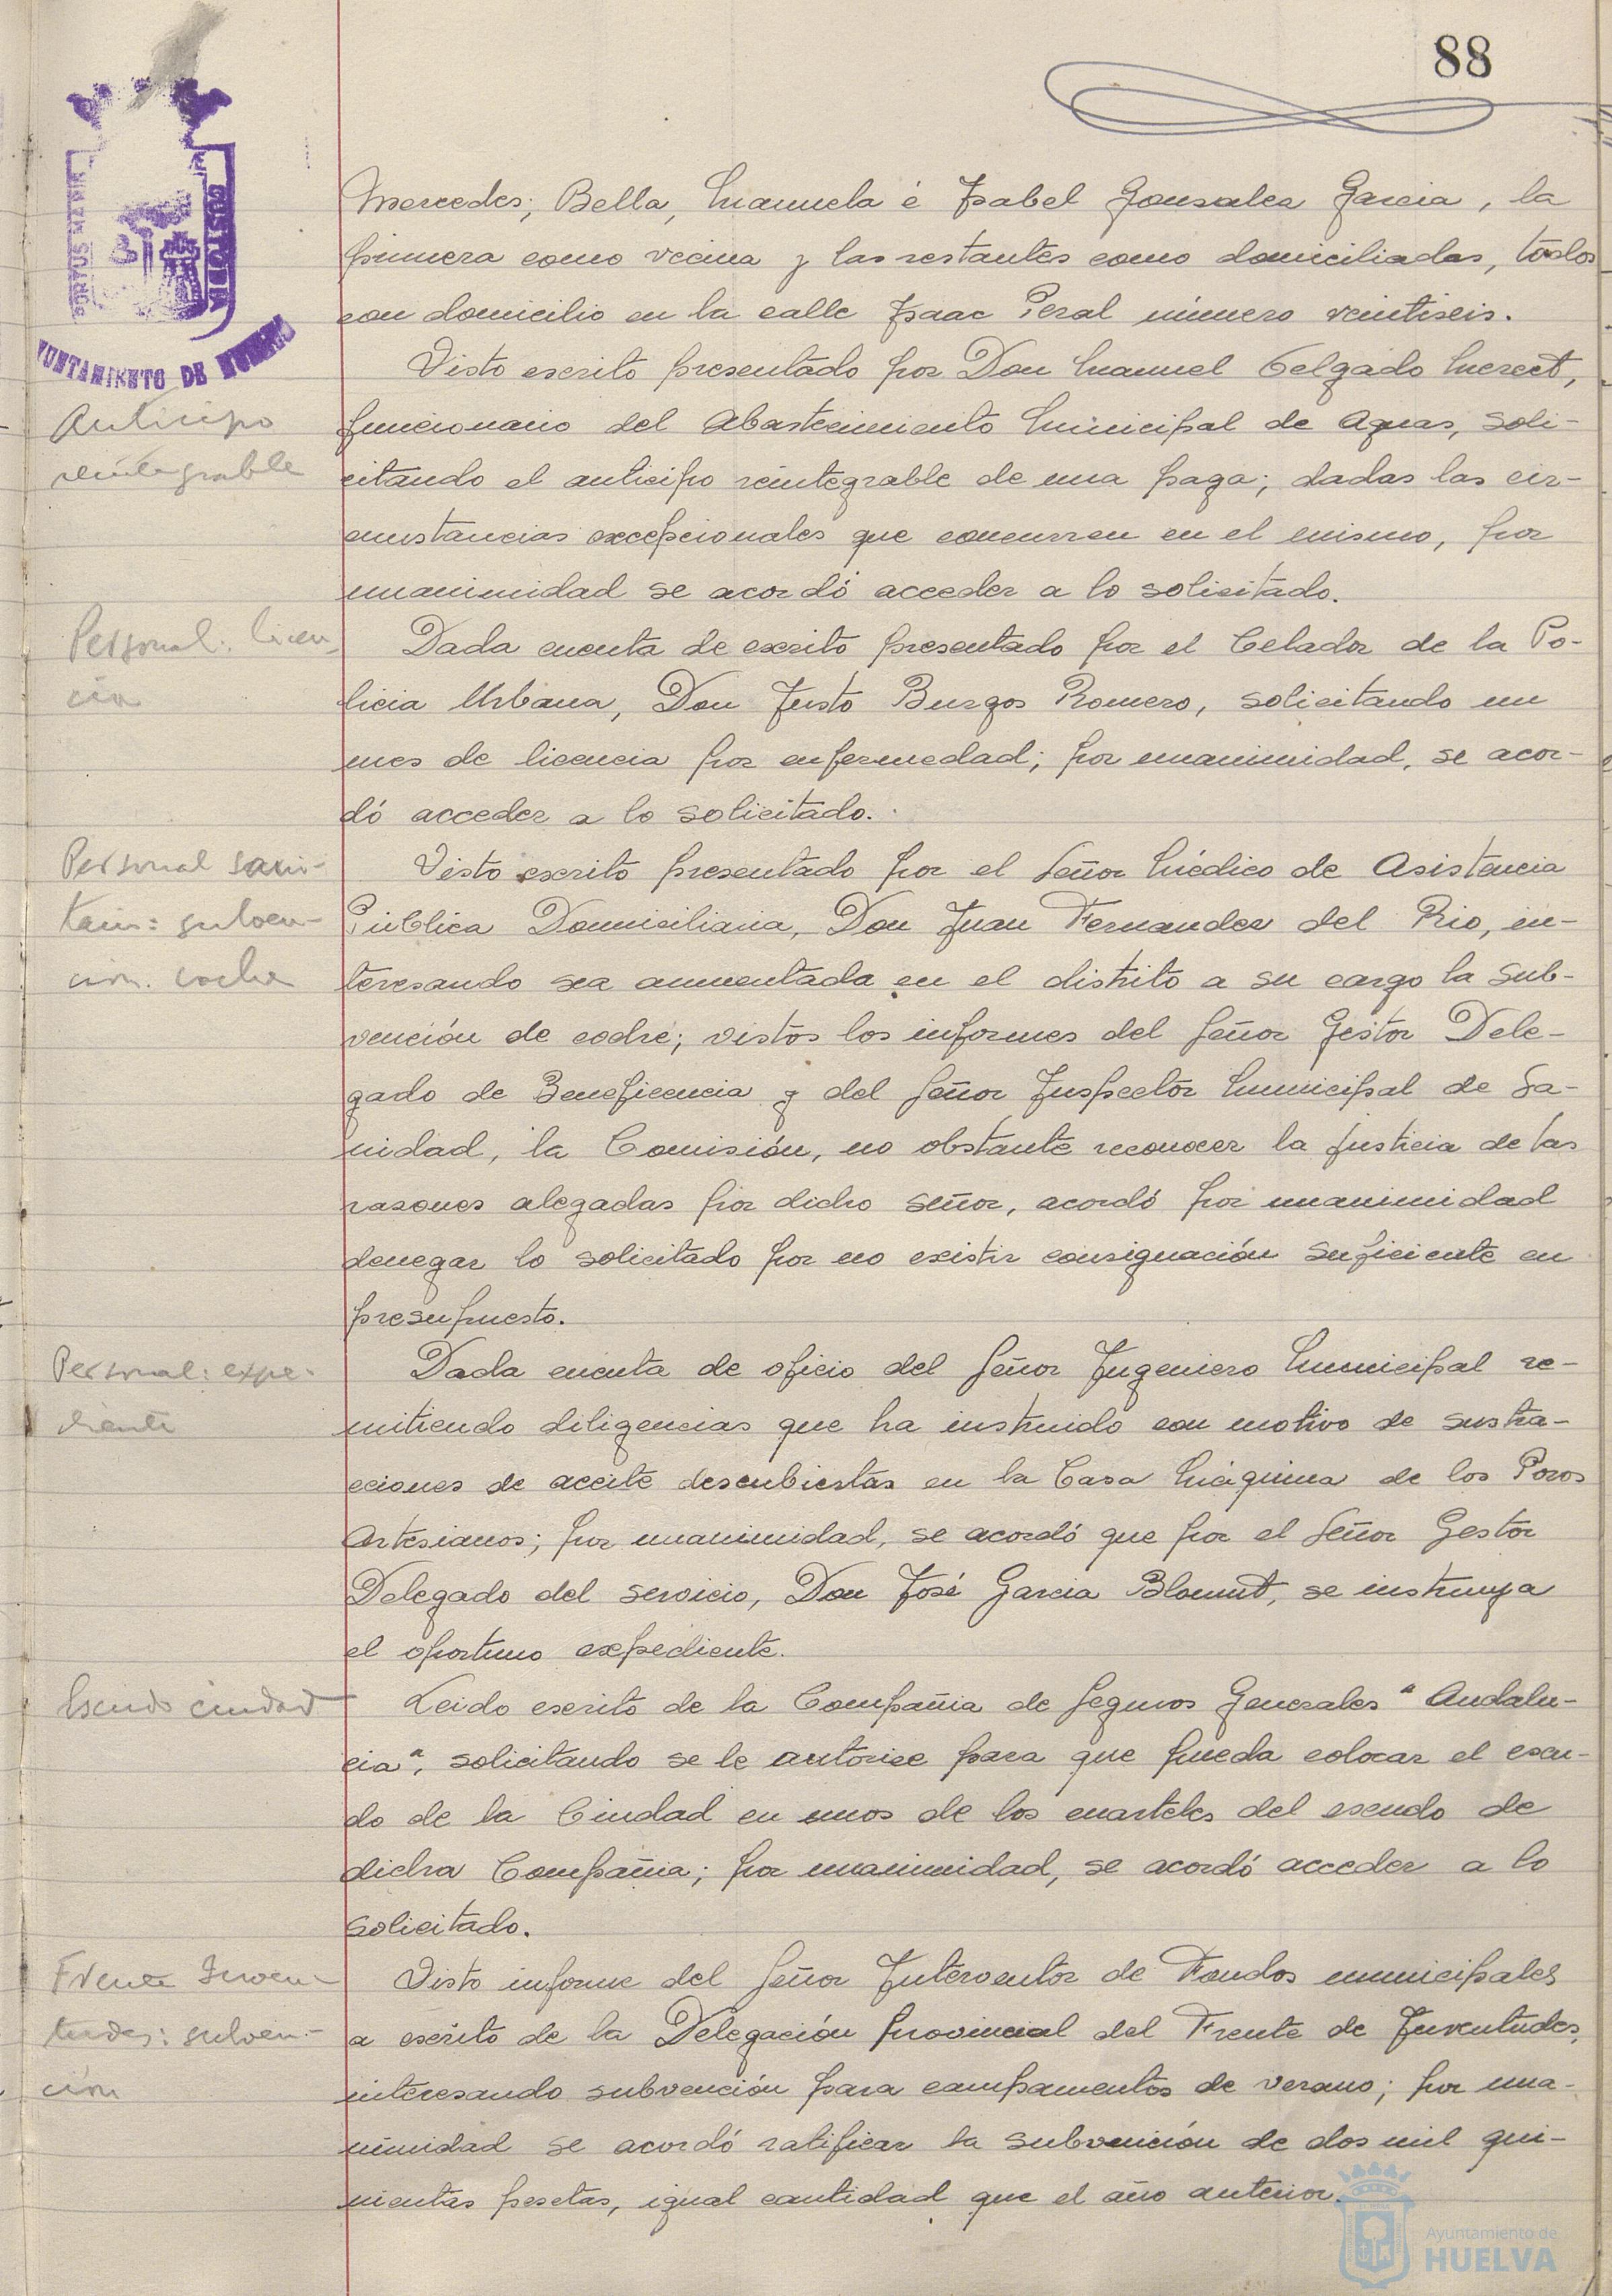 88
PORTUS MARIS
CUSTODIA
AYUNTAMIENTO DE HUELVA
Mercedes, Bella, Manuela é Isabel Gonzalez Garcia, la
primera como vecina y las restantes como domiciliadas, todos
con domicilio en la calle Isaac Peral número veintiseis.
Anticipo
reintegrable
Visto escrito presentado por Don Manuel Gelgado Meret,
funcionario del Abastecimiento Municipal de Aguas, soli-
citando el anticipo reintegrable de una paga; dadas las cir-
cunstancias excepcionales que concurren en el mismo, por
unanimidad se acordó acceder a lo solicitado.
Personal: licen
cia
Dada cuenta de escrito presentado por el Celador de la Po-
licia Urbana, Don Justo Burgos Romero, solicitando un
mes de licencia por enfermedad; por unanimidad, se acor-
dó acceder a lo solicitado.
Personal sani-
tario: subven-
ción coche
Visto escrito presentado por el Señor Médico de Asistencia
Pública Domiciliaria, Don Juan Fernandez del Rio, in-
teresando sea aumentada en el distrito a su cargo la sub-
vención de coche; vistos los informes del Señor Gestor Dele-
gado de Beneficencia y del Señor Inspector Municipal de Sa-
nidad, la Comisión, no obstante reconocer la justicia de las
razones alegadas por dicho señor, acordó por unanimidad
denegar lo solicitado por no existir consignación suficiente en
presupuesto.
Personal: expe-
diente
Dada cuenta de oficio del Señor Ingeniero Municipal re-
mitiendo diligencias que ha instruido con motivo de sustra-
cciones de aceite descubiertas en la Casa Máquina de los Pozos
Artesianos; por unanimidad, se acordó que por el Señor Gestor
Delegado del servicio, Don José Garcia Blomut, se instruya
el oportuno expediente.
Escudo ciudad
Leido escrito de la Compañia de Seguros Generales "Andalu-
cia", solicitando se le autorice para que pueda colocar el escu-
do de la Ciudad en unos de los cuarteles del escudo de
dicha Compañia; por unanimidad, se acordó acceder a lo
solicitado.
Frente Juven-
tudes: subven-
ción
Visto informe del Señor Interventor de Fondos municipales
a escrito de la Delegación Provincial del Frente de Juventudes,
interesando subvención para campamentos de verano; por una-
nimidad se acordó ratificar la subvención de dos mil qui-
nientas pesetas, igual cantidad que el año anterior.
Ayuntamiento de
HUELVA